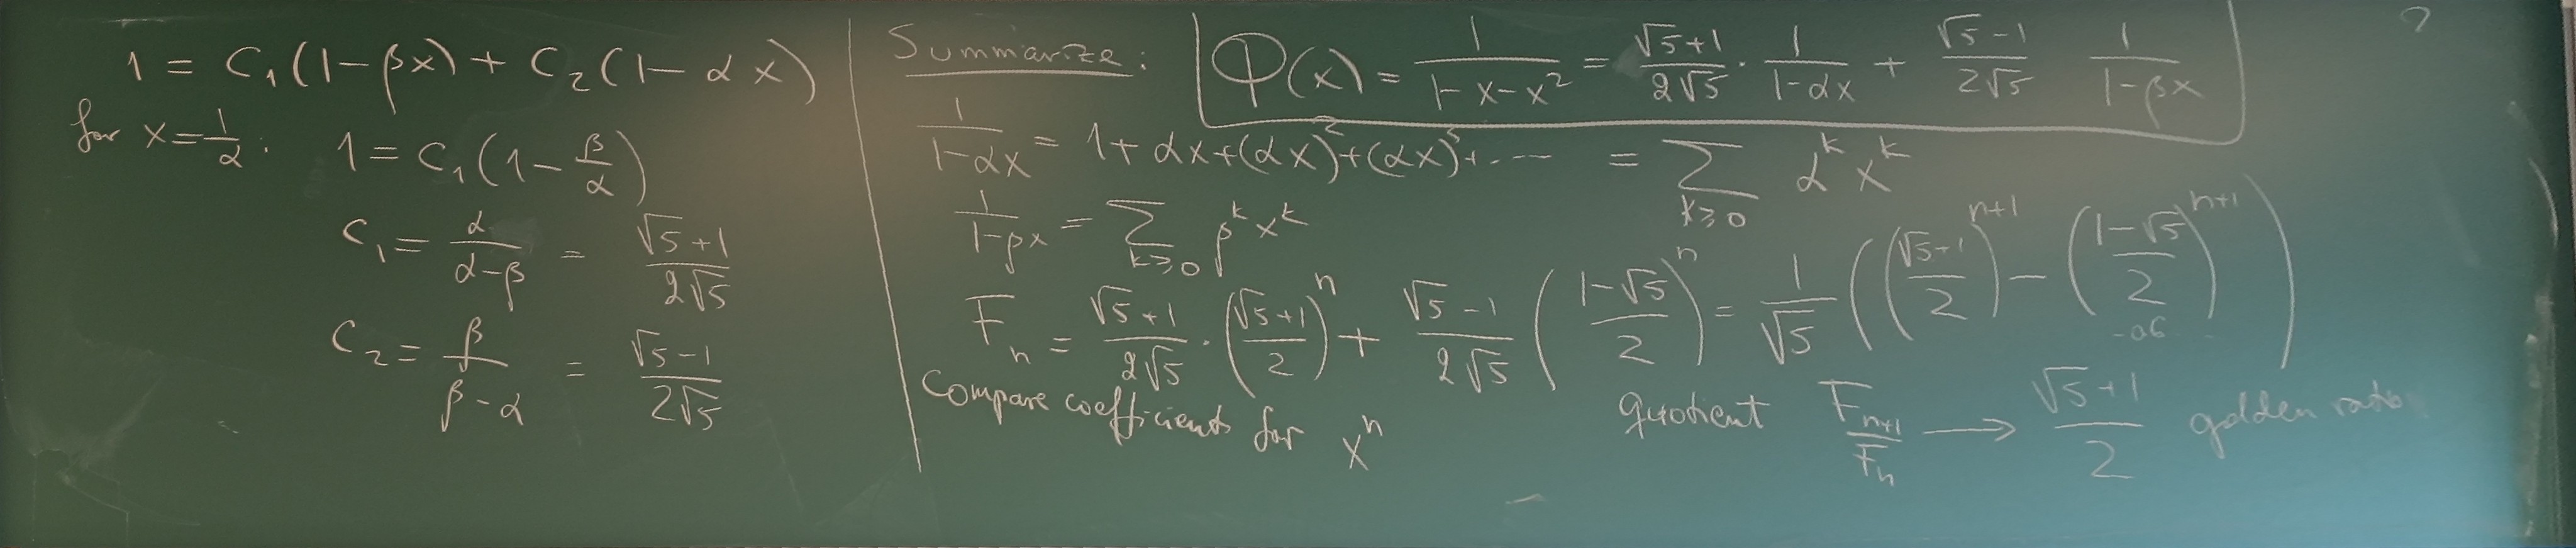 1 = C₁(1-βx) + C₂(1-αx)
for x=1/α: 1 = C₁(1-β/α)
C₁ = α/(α-β) = (√5+1)/(2√5)
C₂ = β/(β-α) = (√5-1)/(2√5)
Summarize: Φ(x) = 1/(1-x-x²) = (√5+1)/(2√5) · 1/(1-αx) + (√5-1)/(2√5) 1/(1-βx)
1/(1-αx) = 1+αx+(αx)²+(αx)³+.... = ∑_{k≥0} α^k x^k
1/(1-βx) = ∑_{k≥0} β^k x^k
F_n = (√5+1)/(2√5) · ((√5+1)/2)^n + (√5-1)/(2√5) ((1-√5)/2)^n = 1/√5 (((√5+1)/2)^{n+1} - ((1-√5)/2)^{n+1})
-0.6
Compare coefficients for x^n
quotient F_{n+1}/F_n → (√5+1)/2 golden ratio